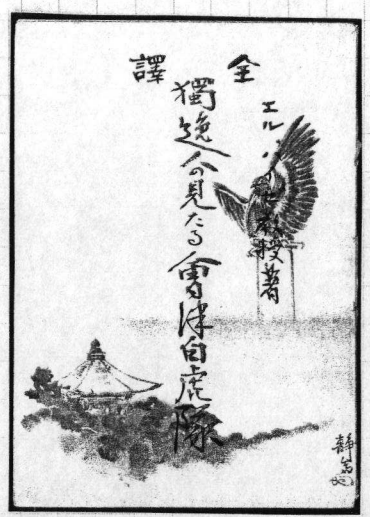 全譯
エル
教授著
獨逸人の見たる會津白虎隊